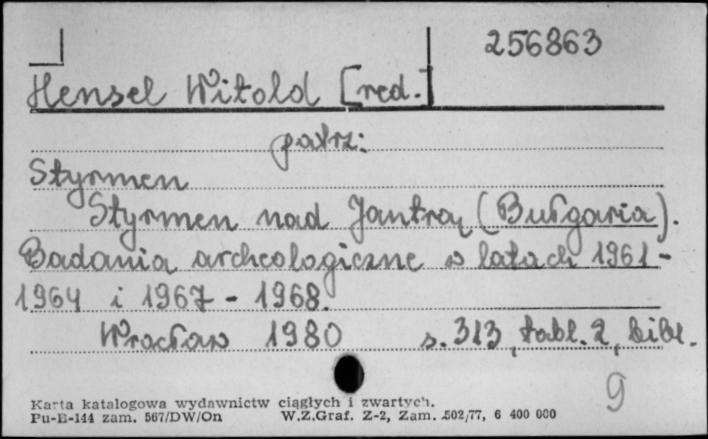 256863
Hensel Witold [red.]
patrz:
Styrmen
Styrmen nad Jantrą (Bułgaria).
Badania archeologiczne w latach 1961-
1964 i 1967 - 1968.
Wrocław 1980 s. 313, tabl. 2, bibl.
9
Karta katalogowa wydawnictw ciągłych i zwartych.
Pu-E-144 zam. 567/DW/On W.Z.Graf. Z-2, Zam. 502/77, 6 400 000